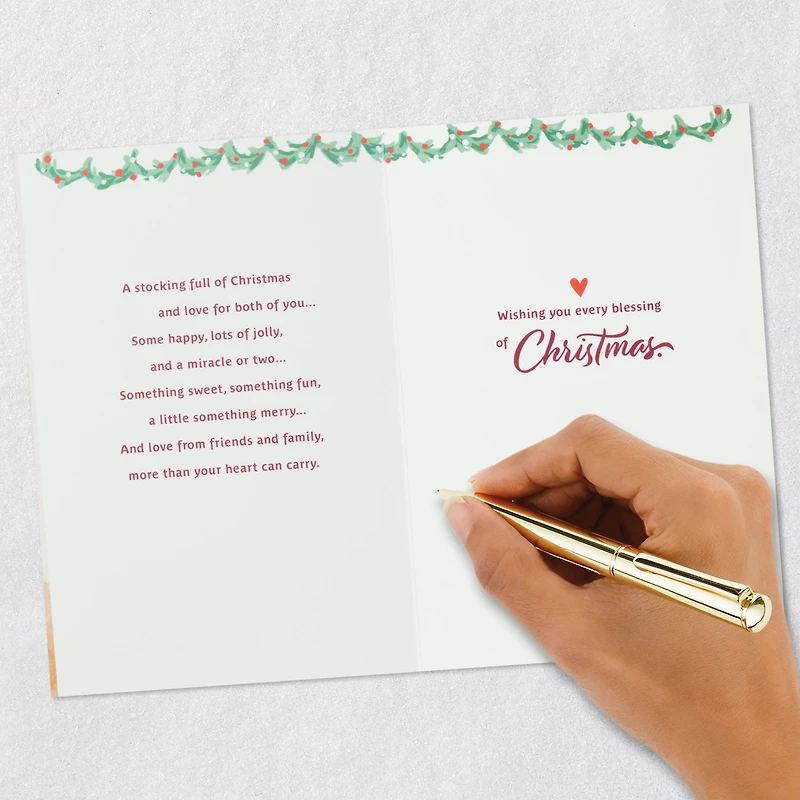 A stocking full of Christmas
and love for both of you...
Some happy, lots of jolly,
and a miracle or two...
Something sweet, something fun,
a little something merry...
And love from friends and family,
more than your heart can carry.
Wishing you every blessing
of Christmas.